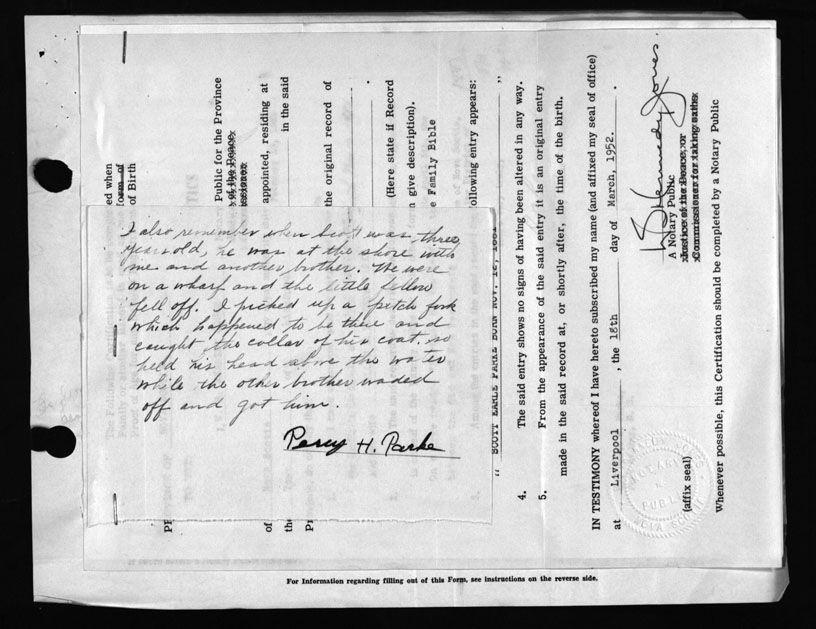 I also remember when Scott was three
years old, he was at the shore with
me and another brother. We were
on a wharf and the little fellow
fell off. I picked up a pitch fork
which happened to be there and
caught the collar of his coat, so
held his head above the water
while the other brother waded
off and got him.
Percy H. Parke
ed when
form of
of Birth
Public for the Province
of the Peace,
appointed, residing at
in the said
the original record of
(Here state if Record
n give description).
e Family Bible
ollowing entry appears:
" SCOTT EARLE PARKE BORN NOV. 12, 1881 "
4. The said entry shows no signs of having been altered in any way.
5. From the appearance of the said entry it is an original entry
made in the said record at, or shortly after, the time of the birth.
IN TESTIMONY whereof I have hereto subscribed my name (and affixed my seal of office)
at Liverpool , the 18th day of March, 1952. .
Kennedy Jones
A Notary Public
Justice of the Peace, or
Commissioner for taking oaths
(affix seal)
Whenever possible, this Certification should be completed by a Notary Public
of
the
Pr
For Information regarding filling out of this Form, see instructions on the reverse side.